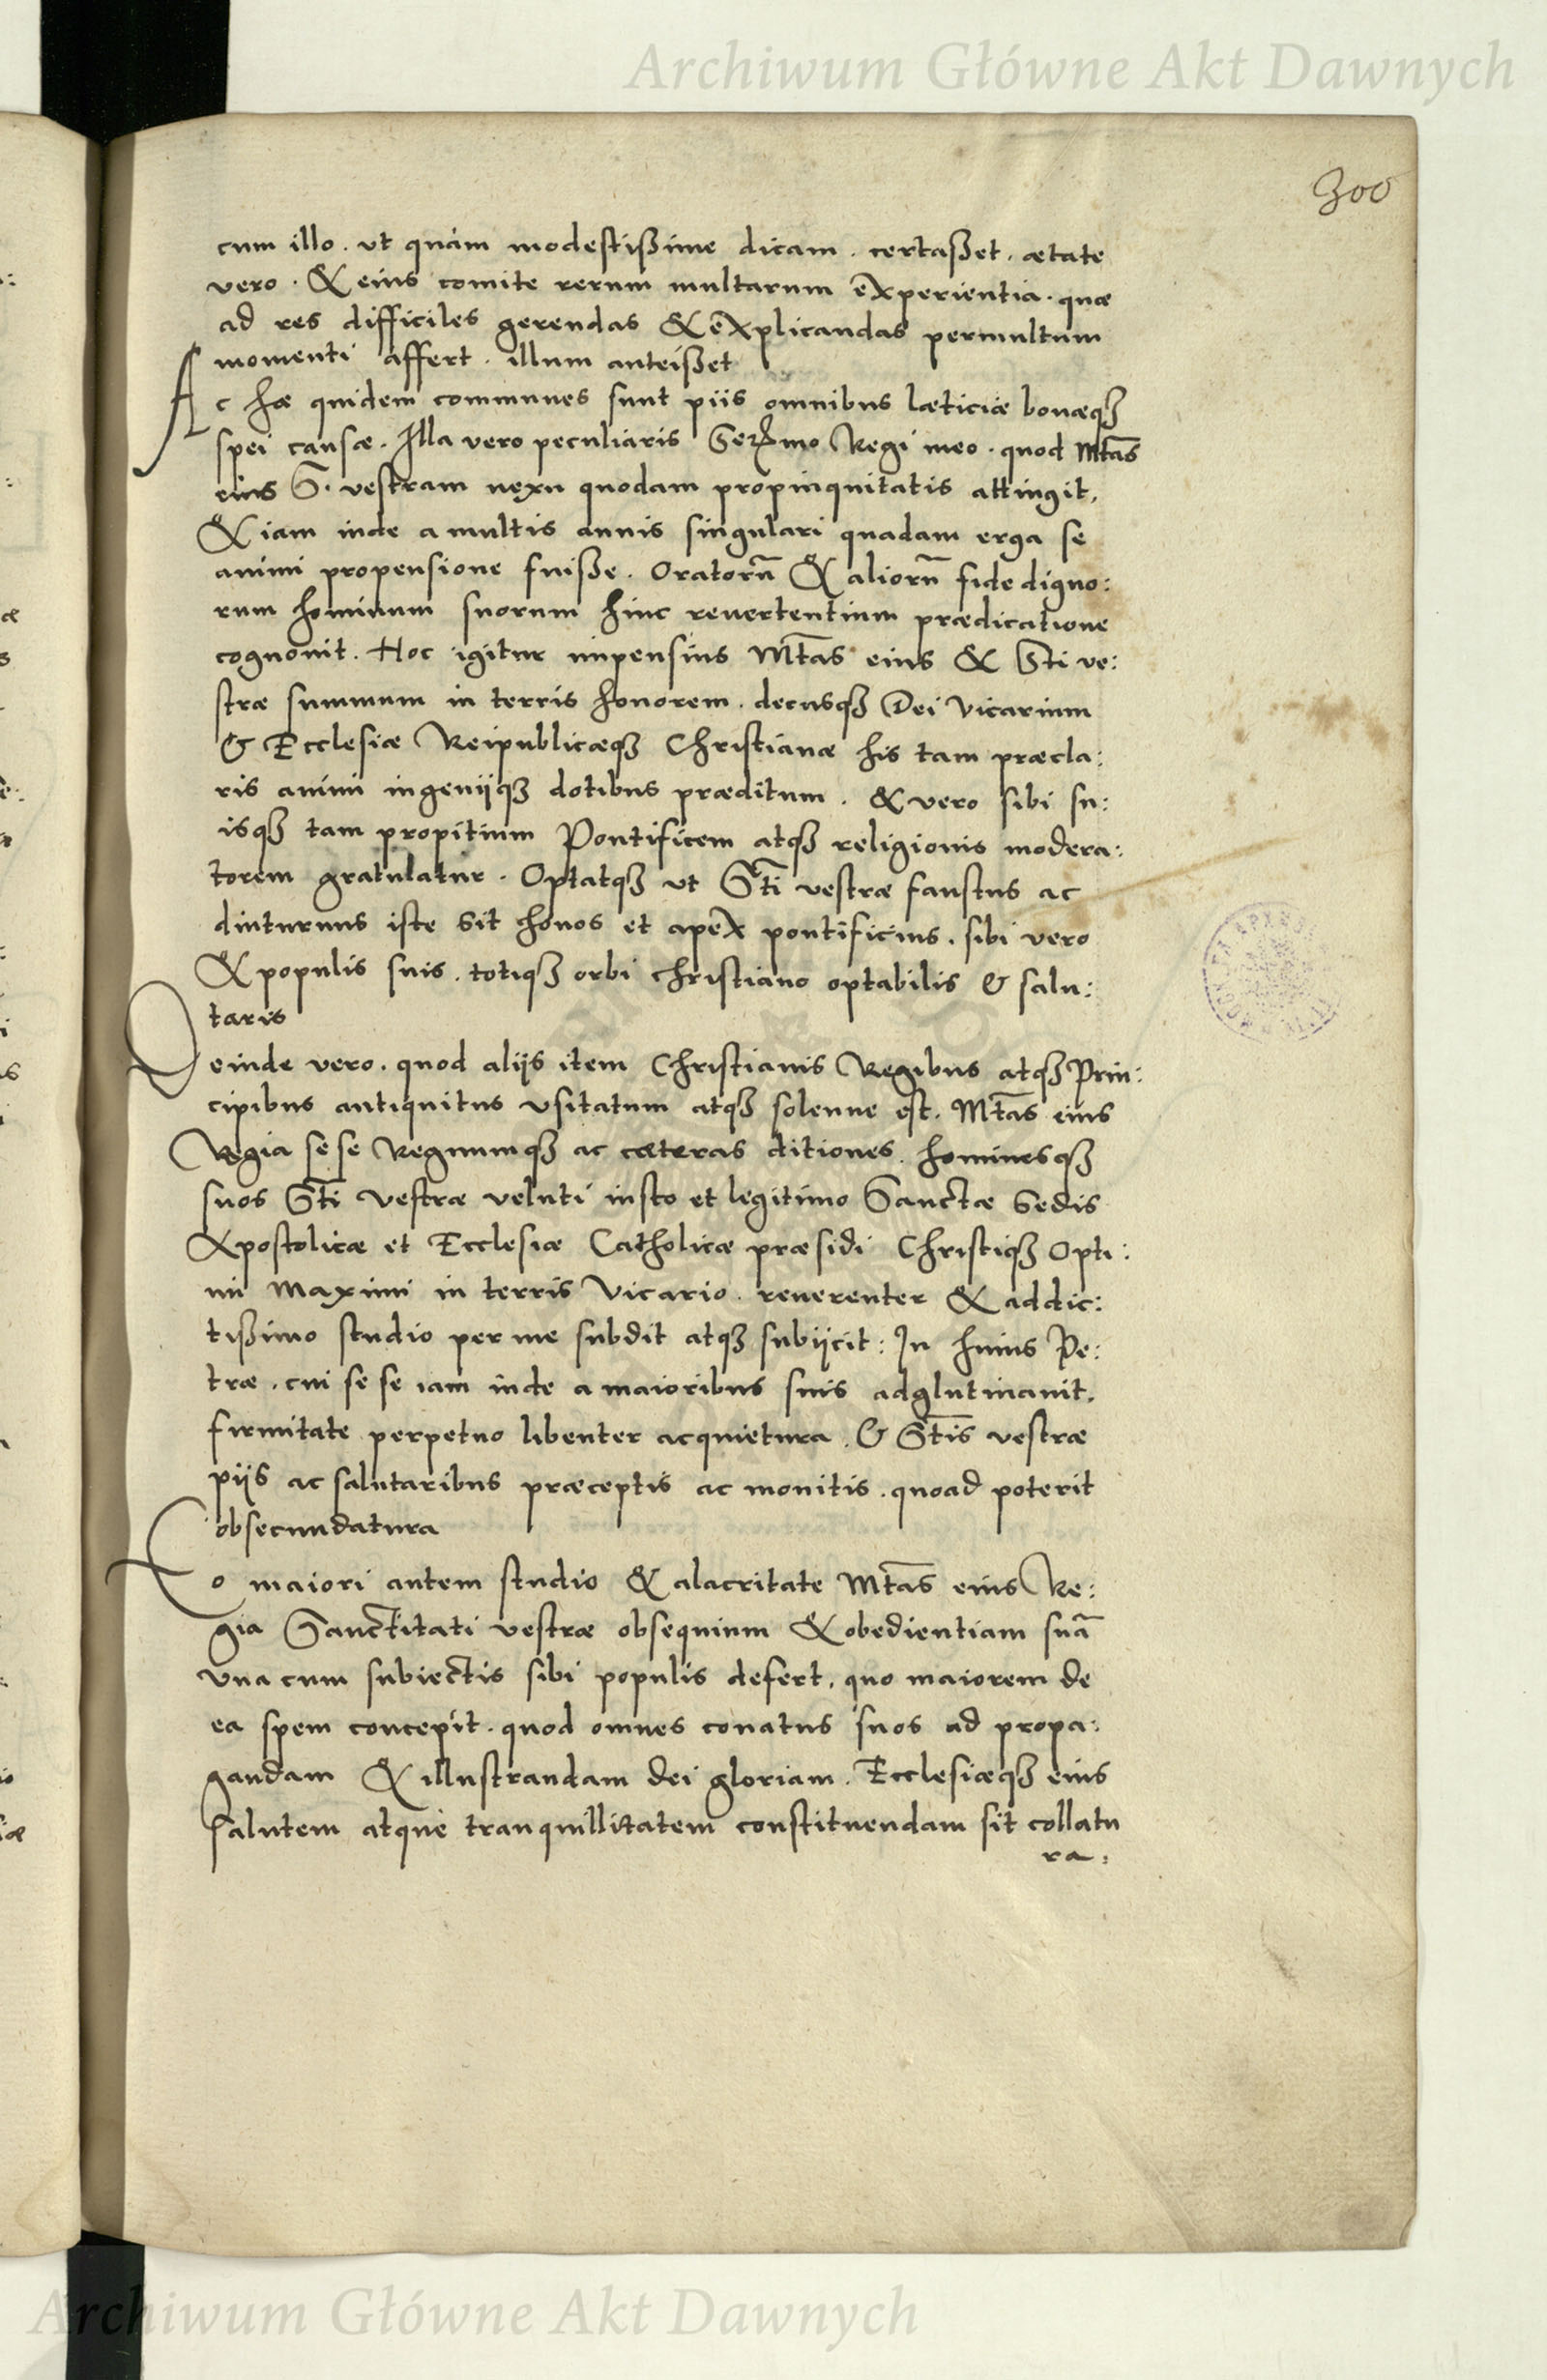 Archiwum Główne Akt Dawnych
300
cum illo. ut quàm modestißime dicam. certaßet. ætate
vero. & eius comite rerum multarum experientia. quæ
ad res difficiles gerendas & explicandas permultum
momenti affert. illum anteißet
Ac hæ quidem communes sunt piis omnibus læticiæ bonæqȝ
spei causæ. Illa vero peculiaris Serᵐmo Regi meo. quod Mtās
eius S. vestram nexu quodam propinquitatis attingit,
& iam inde a multis annis singulari quadam erga se
animi propensione fuiße. Oratorū & aliorū fide digno:
rum hominum suorum hinc revertentium prædicatione
cognouit. Hoc igitur impensius Mtās eius & Sti ve:
stræ summum in terris honorem. decusqȝ Dei Vicarium
& Ecclesiæ Reipublicæqȝ Christianæ his tam præcla:
ris animi ingeniiqȝ dotibus præditum. & vero sibi su:
isqȝ tam propitium Pontificem atqȝ religionis modera:
torem gratulatur. Optatqȝ ut Sti vestræ faustus ac
diuturnus iste sit honos et apex pontificius. sibi vero
& populis suis. totiqȝ orbi christiano optabilis & salu:
taris
Deinde vero. quod aliis item Christianis Regibus atqȝ Prin:
cipibus antiquitus usitatum atqȝ solenne est. Mtās eius
Regia sese Regnumqȝ ac cæteras ditiones. hominesqȝ
suos Sti vestræ veluti iusto et legitimo Sanctæ Sedis
Apostolicæ et Ecclesiæ Catholicæ præsidi Christiqȝ Opti:
mi Maximi in terris Vicario. reuerenter & addic:
tißimo studio per me subdit atqȝ subiicit: In huius Pe:
træ. cui sese iam inde a maioribus suis adglutinauit.
firmitate perpetuo libenter acquietura. & Stīs vestræ
piis ac salutaribus præceptis ac monitis. quoad poterit
obsecundatura
Eo maiori autem studio & alacritate Mtās eius Re:
gia Sanctitati vestræ obsequium & obedientiam suā
una cum subiectis sibi populis defert. quo maiorem de
ea spem concepit. quod omnes conatus suos ad propa:
gandam & illustrandam dei gloriam. Ecclesiæqȝ eius
salutem atque tranquillitatem constituendam sit collatu
ra:
Archiwum Główne Akt Dawnych